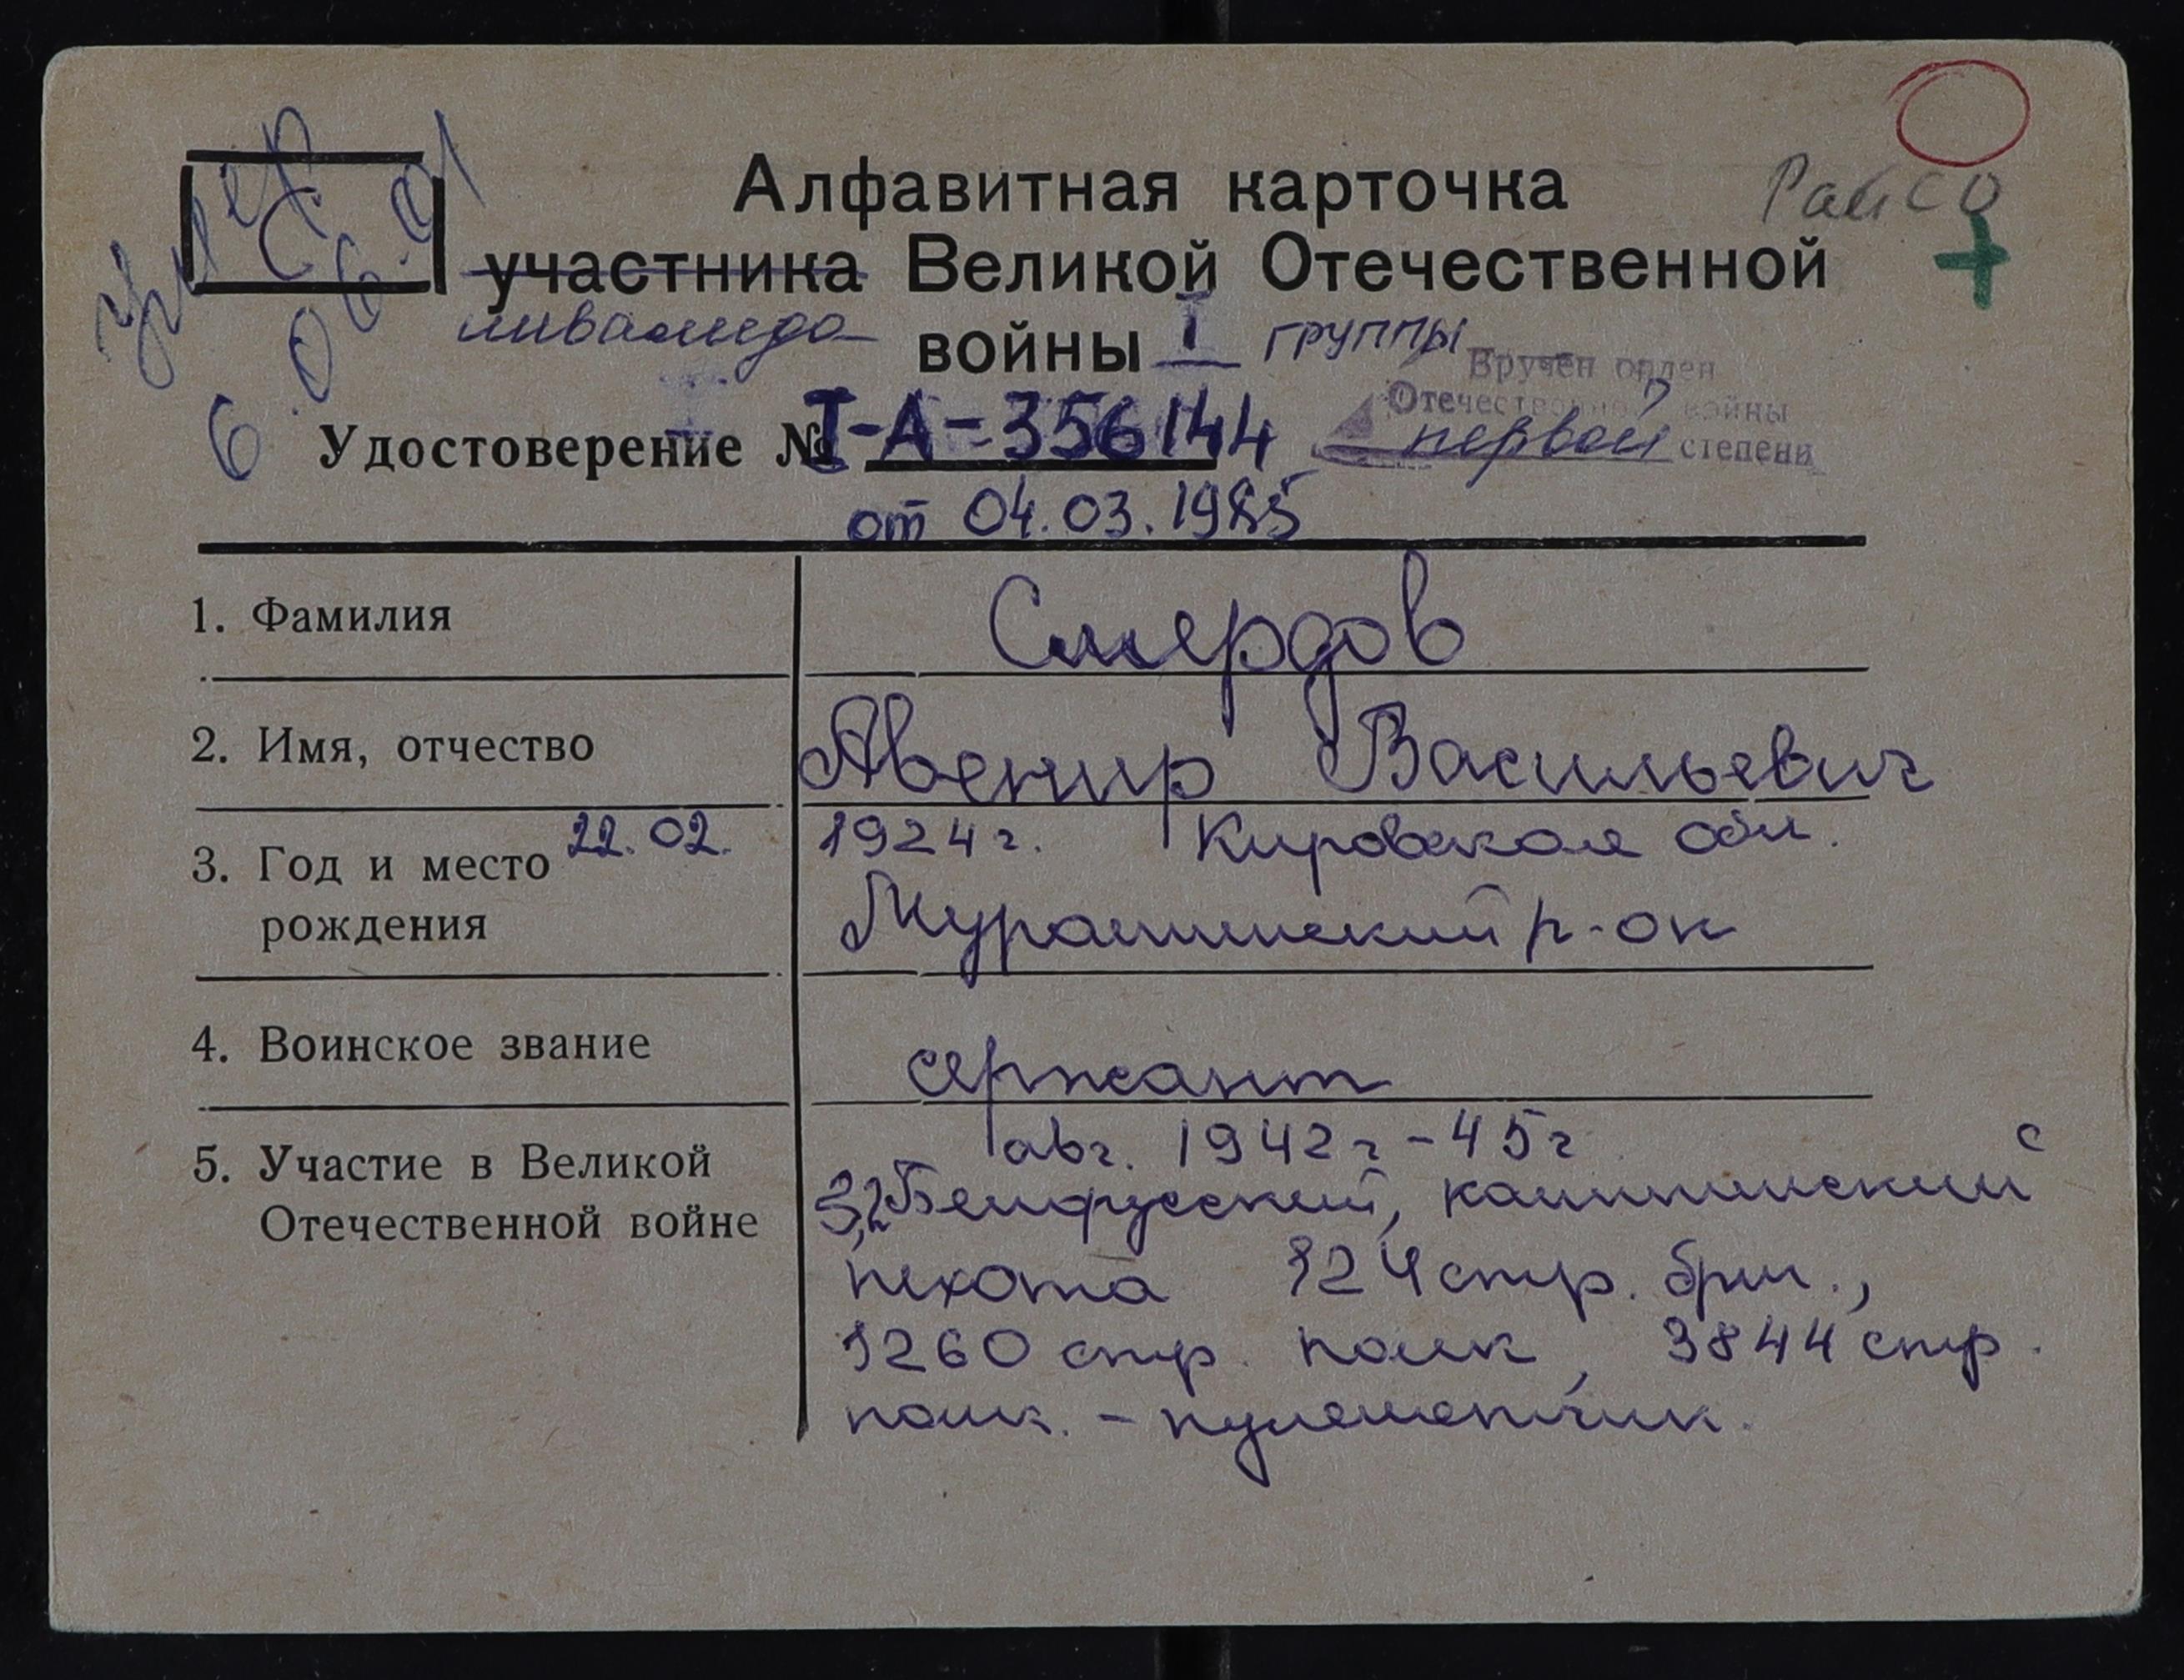 Райсо
С
умер
6.06.91
Алфавитная карточка
участника Великой Отечественной
инвалида войны I группы
Вручен орден
Отечественной войны
первой степени
Удостоверение № I-А-356144
от 04.03.1985
1. Фамилия Смердов
2. Имя, отчество Авенир Васильевич
3. Год и место 22.02. 1924 г. Кировская обл.
рождения Мурашинский р-он
4. Воинское звание сержант
5. Участие в Великой авг. 1942 г - 45 г
Отечественной войне 3,2 Белорусский, калининский с
пехота 124 стр. бриг.,
1260 стр. полк, 3844 стр.
полк. - пулеметчик.